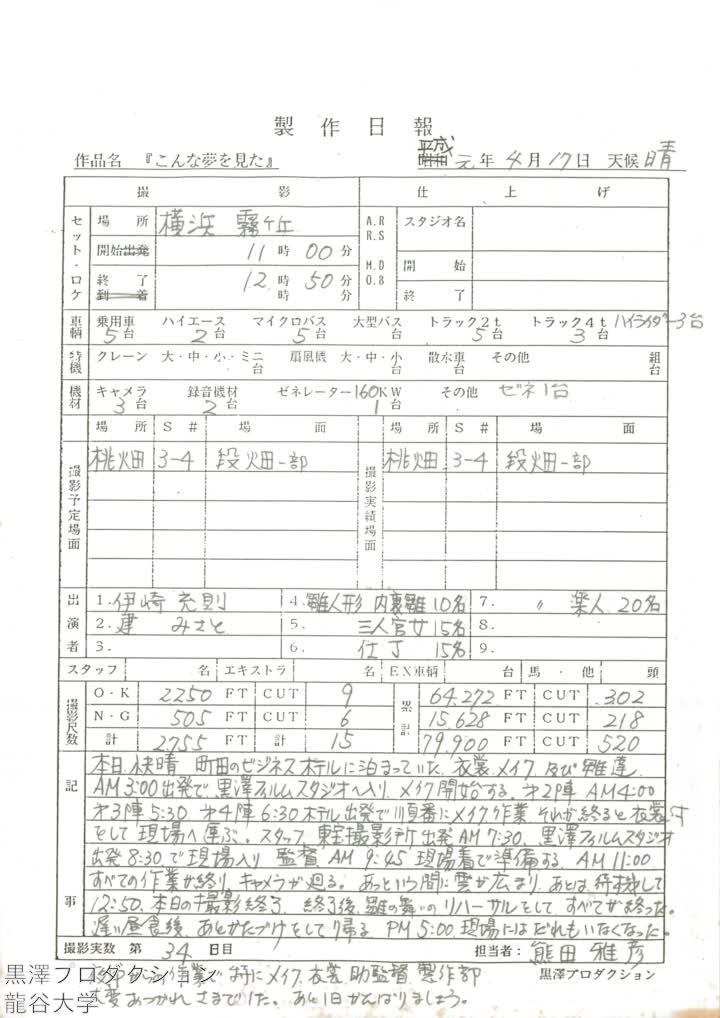 製作日報
作品名 『こんな夢を見た』 平成 元年4月17日 天候 晴
撮影 仕上げ
セット・ロケ 場所 横浜 霧ヶ丘 A.R R.S スタジオ名
開始出発 11時00分 M.D O.B 開始
終了 到着 12時50分 時 分 終了
車輌 乗用車 5台 ハイエース 2台 マイクロバス 5台 大型バス トラック2t 5台 トラック4t 3台 ハイライダー3台
特機 クレーン 大・中・小・ミニ 台 扇風機 大・中・小 台 散水車 台 その他 組 台
機材 キャメラ 3台 録音機材 2台 ゼネレーター160KW 1台 その他 ゼネ1台
場所 S# 場面 場所 S# 場面
撮影予定場面 桃畑 3-4 段畑一部 撮影実績場面 桃畑 3-4 段畑一部
出演者 1. 伊崎充則 4. 雛人形 内裏雛10名 7. 〃 楽人20名
2. 建 みさと 5. 三人官女15名 8.
3. 6. 仕丁 15名 9.
スタッフ 名 エキストラ 名 EX車輌 台 馬・他 頭
撮影尺数 O・K 2250 FT CUT 9 累計 64,272 FT CUT 302
N・G 505 FT CUT 6 15,628 FT CUT 218
計 2,755 FT 計 15 79,900 FT CUT 520
記事 本日、快晴 町田のビジネスホテルに泊まっていた、衣裳、メイク、及び雛達
AM 3:00出発で、黒澤フィルムスタジオへ入り、メイク開始する。オ2陣 AM4:00
オ3陣 5:30 オ4陣 6:30 ホテル出発で順番にメイク作業 それが終ると衣裳
をして現場へ運ぶ。スタッフ、東宝撮影所出発 AM 7:30、黒澤フィルムスタジオ
出発 8:30で現場入り 監督 AM 9:45 現場着で準備する、AM 11:00
すべての作業が終り、キャメラが廻る。あっという間に雲が広まり、あとは、待機して
12:50、本日の撮影終了、終了後、雛の舞いのリハーサルをして、すべてが終った。
遅い昼食後、あとかたづけをして帰る PM 5:00 現場にはだれもいなくなった。
撮影実数 第34日目 担当者:熊田雅彦
特にメイク、衣裳、助監督 製作部 黒澤プロダクション
大変おつかれさまでした。あと1日がんばりましょう。
黒澤プロダクション
龍谷大学